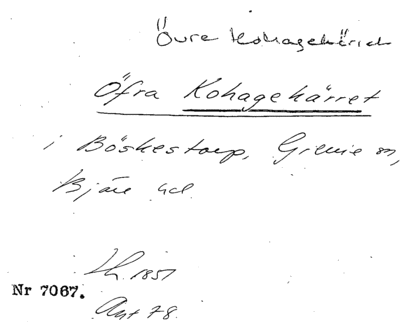 Övre Kohagekärret
Öfra Kohagekärret
i Böskestorp, Grevie sn,
Bjäre hd.
1851
Nr 7067.
Akt 78.